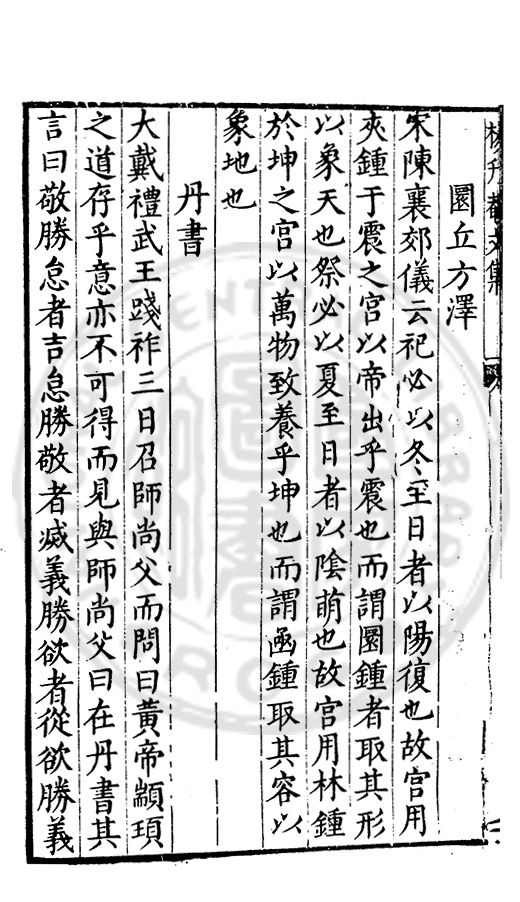 圜丘方澤
宋陳襄郊儀云祀必以冬至日者以陽復也故宮用
夾鍾于震之宮以帝出乎震也而謂圜鍾者取其形
以象天也祭必以夏至日者以陰萌也故宮用林鍾
於坤之宮以萬物致養乎坤也而謂函鍾取其容以
象地也
丹書
大戴禮武王踐祚三日召師尚父而問曰黃帝顓頊
之道存乎意亦不可得而見與師尚父曰在丹書其
言曰敬勝怠者吉怠勝敬者滅義勝欲者從欲勝義